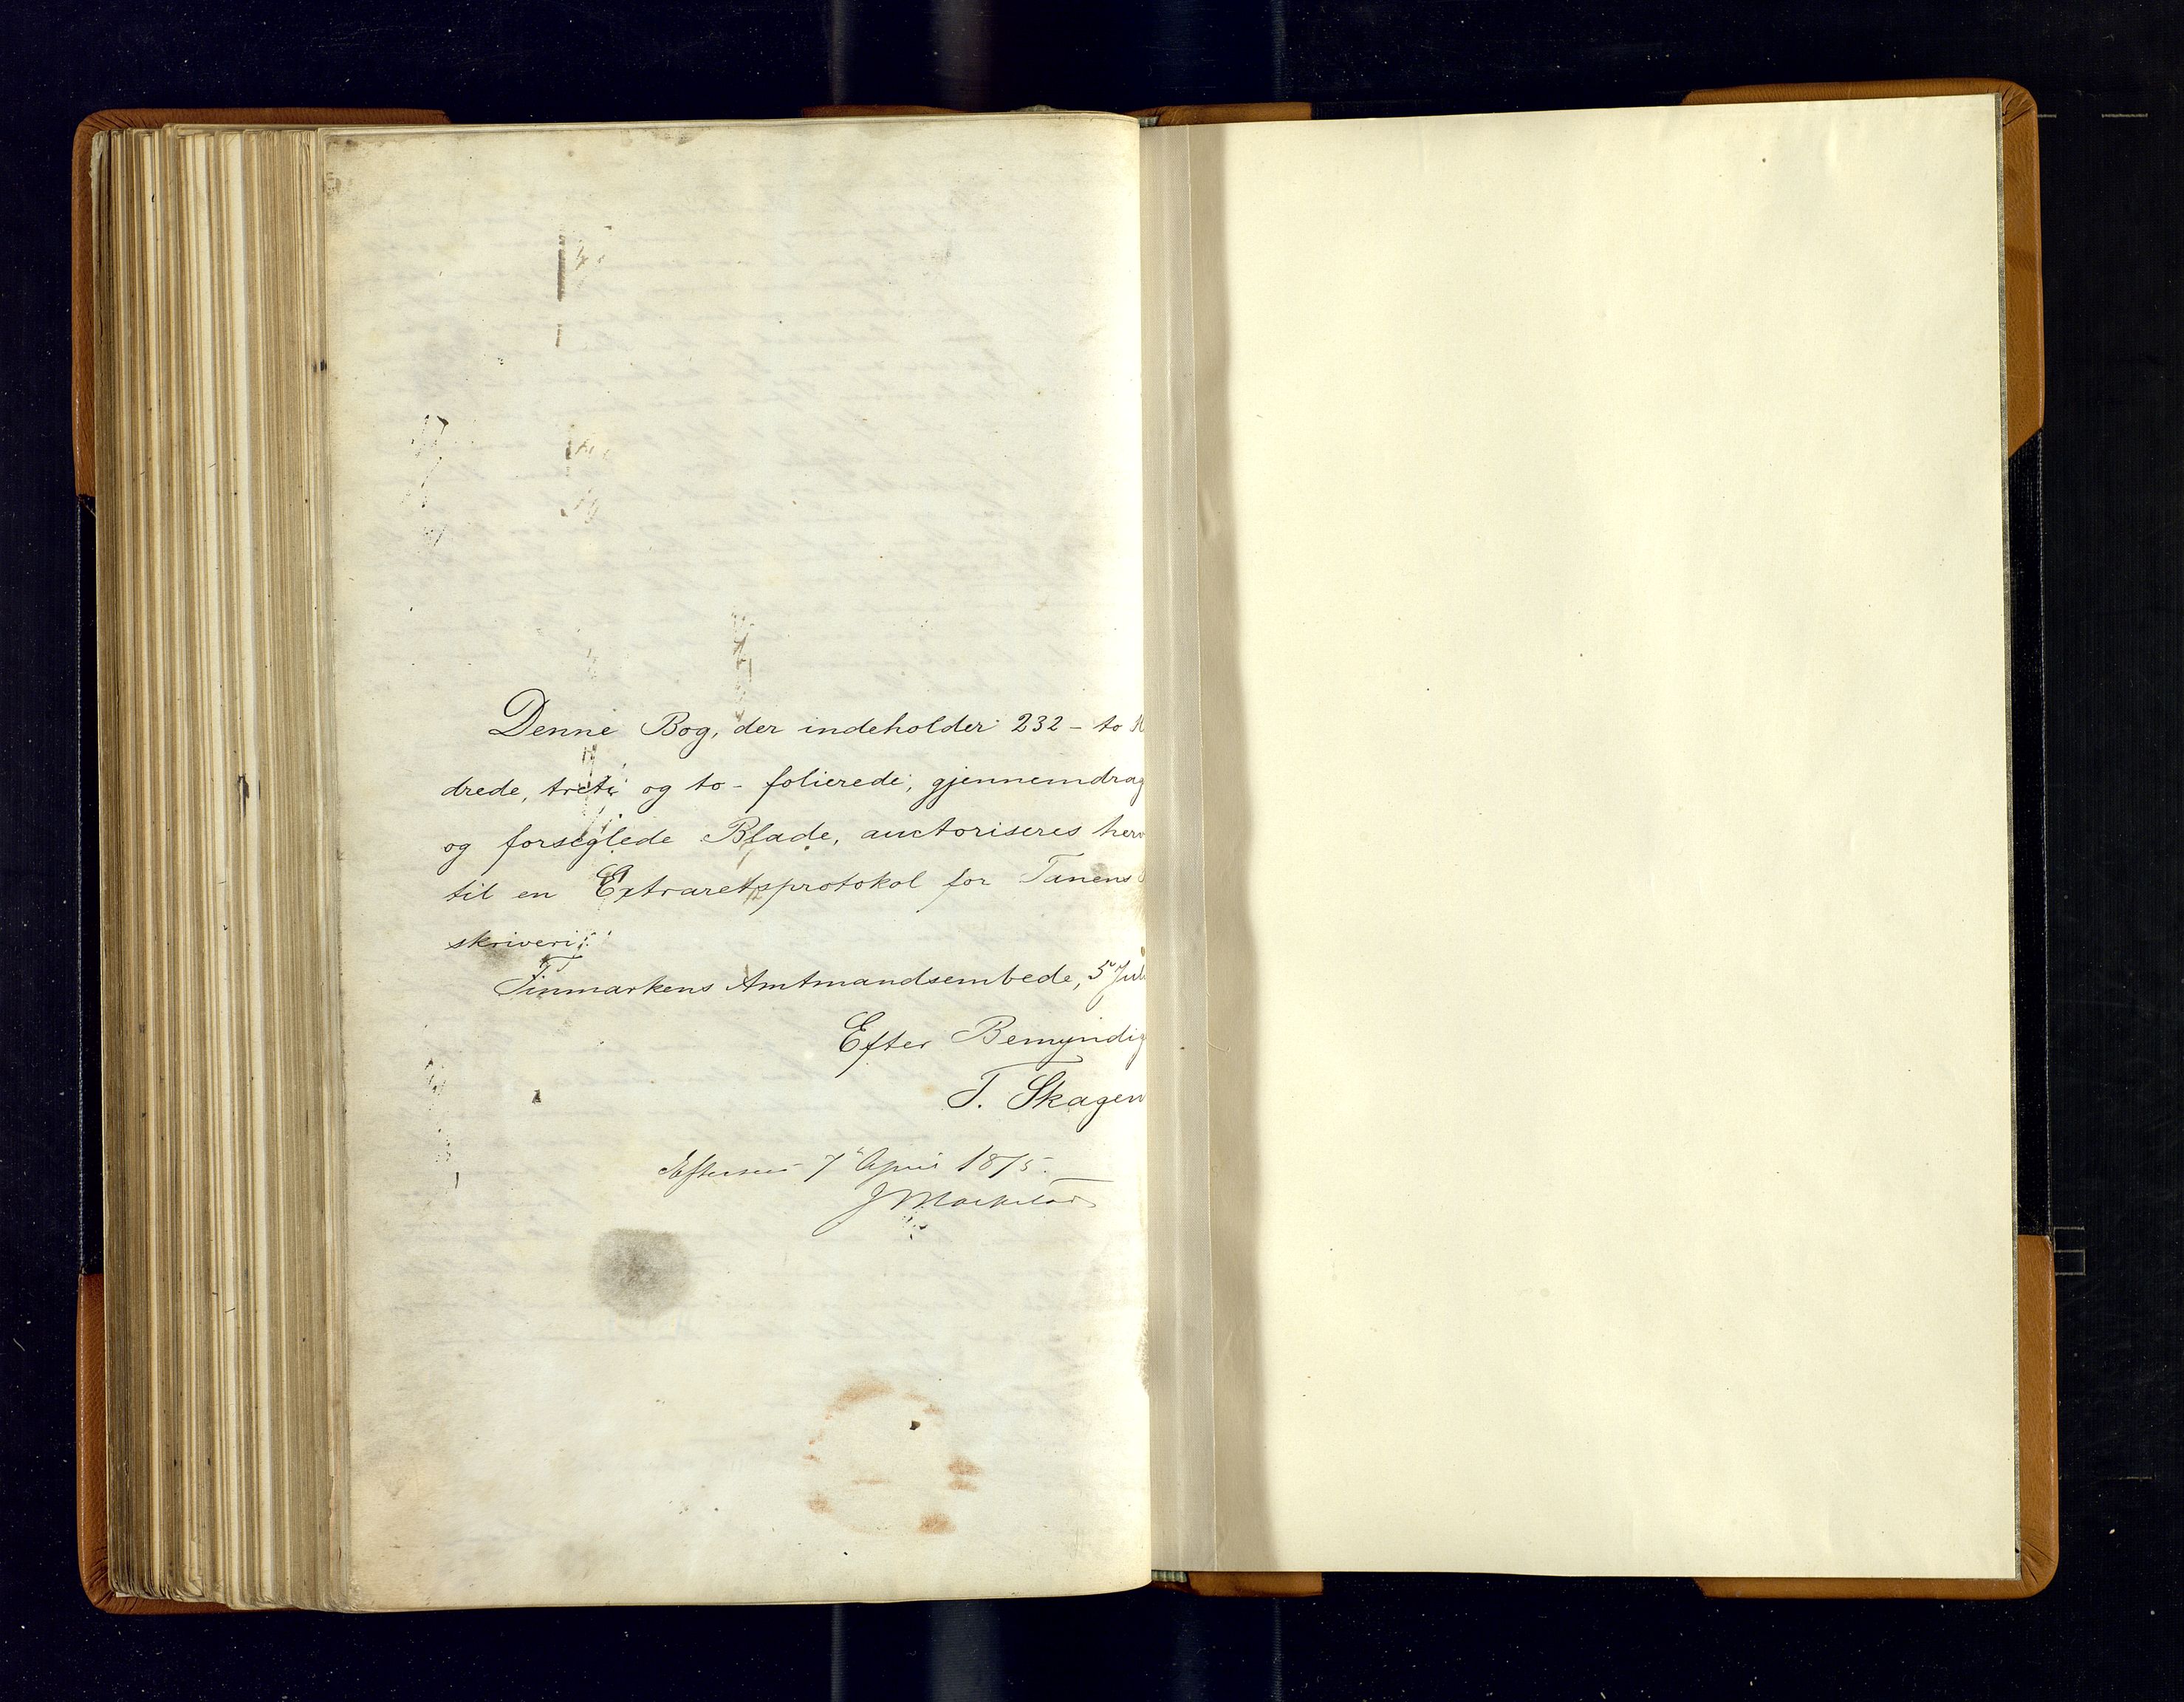 Denne Bog, der indeholder 232 - to H
drede, treti og to - folierede, gjennemdrag
og forseglede Blade, auctoriseres herv
til en Extraretsprotokol for Tanens
skriveri.
Finmarkens Amtmandsembede, 5 Juli
Efter Bemyndig
T. Skagen
Efterseet 7 April 1875.